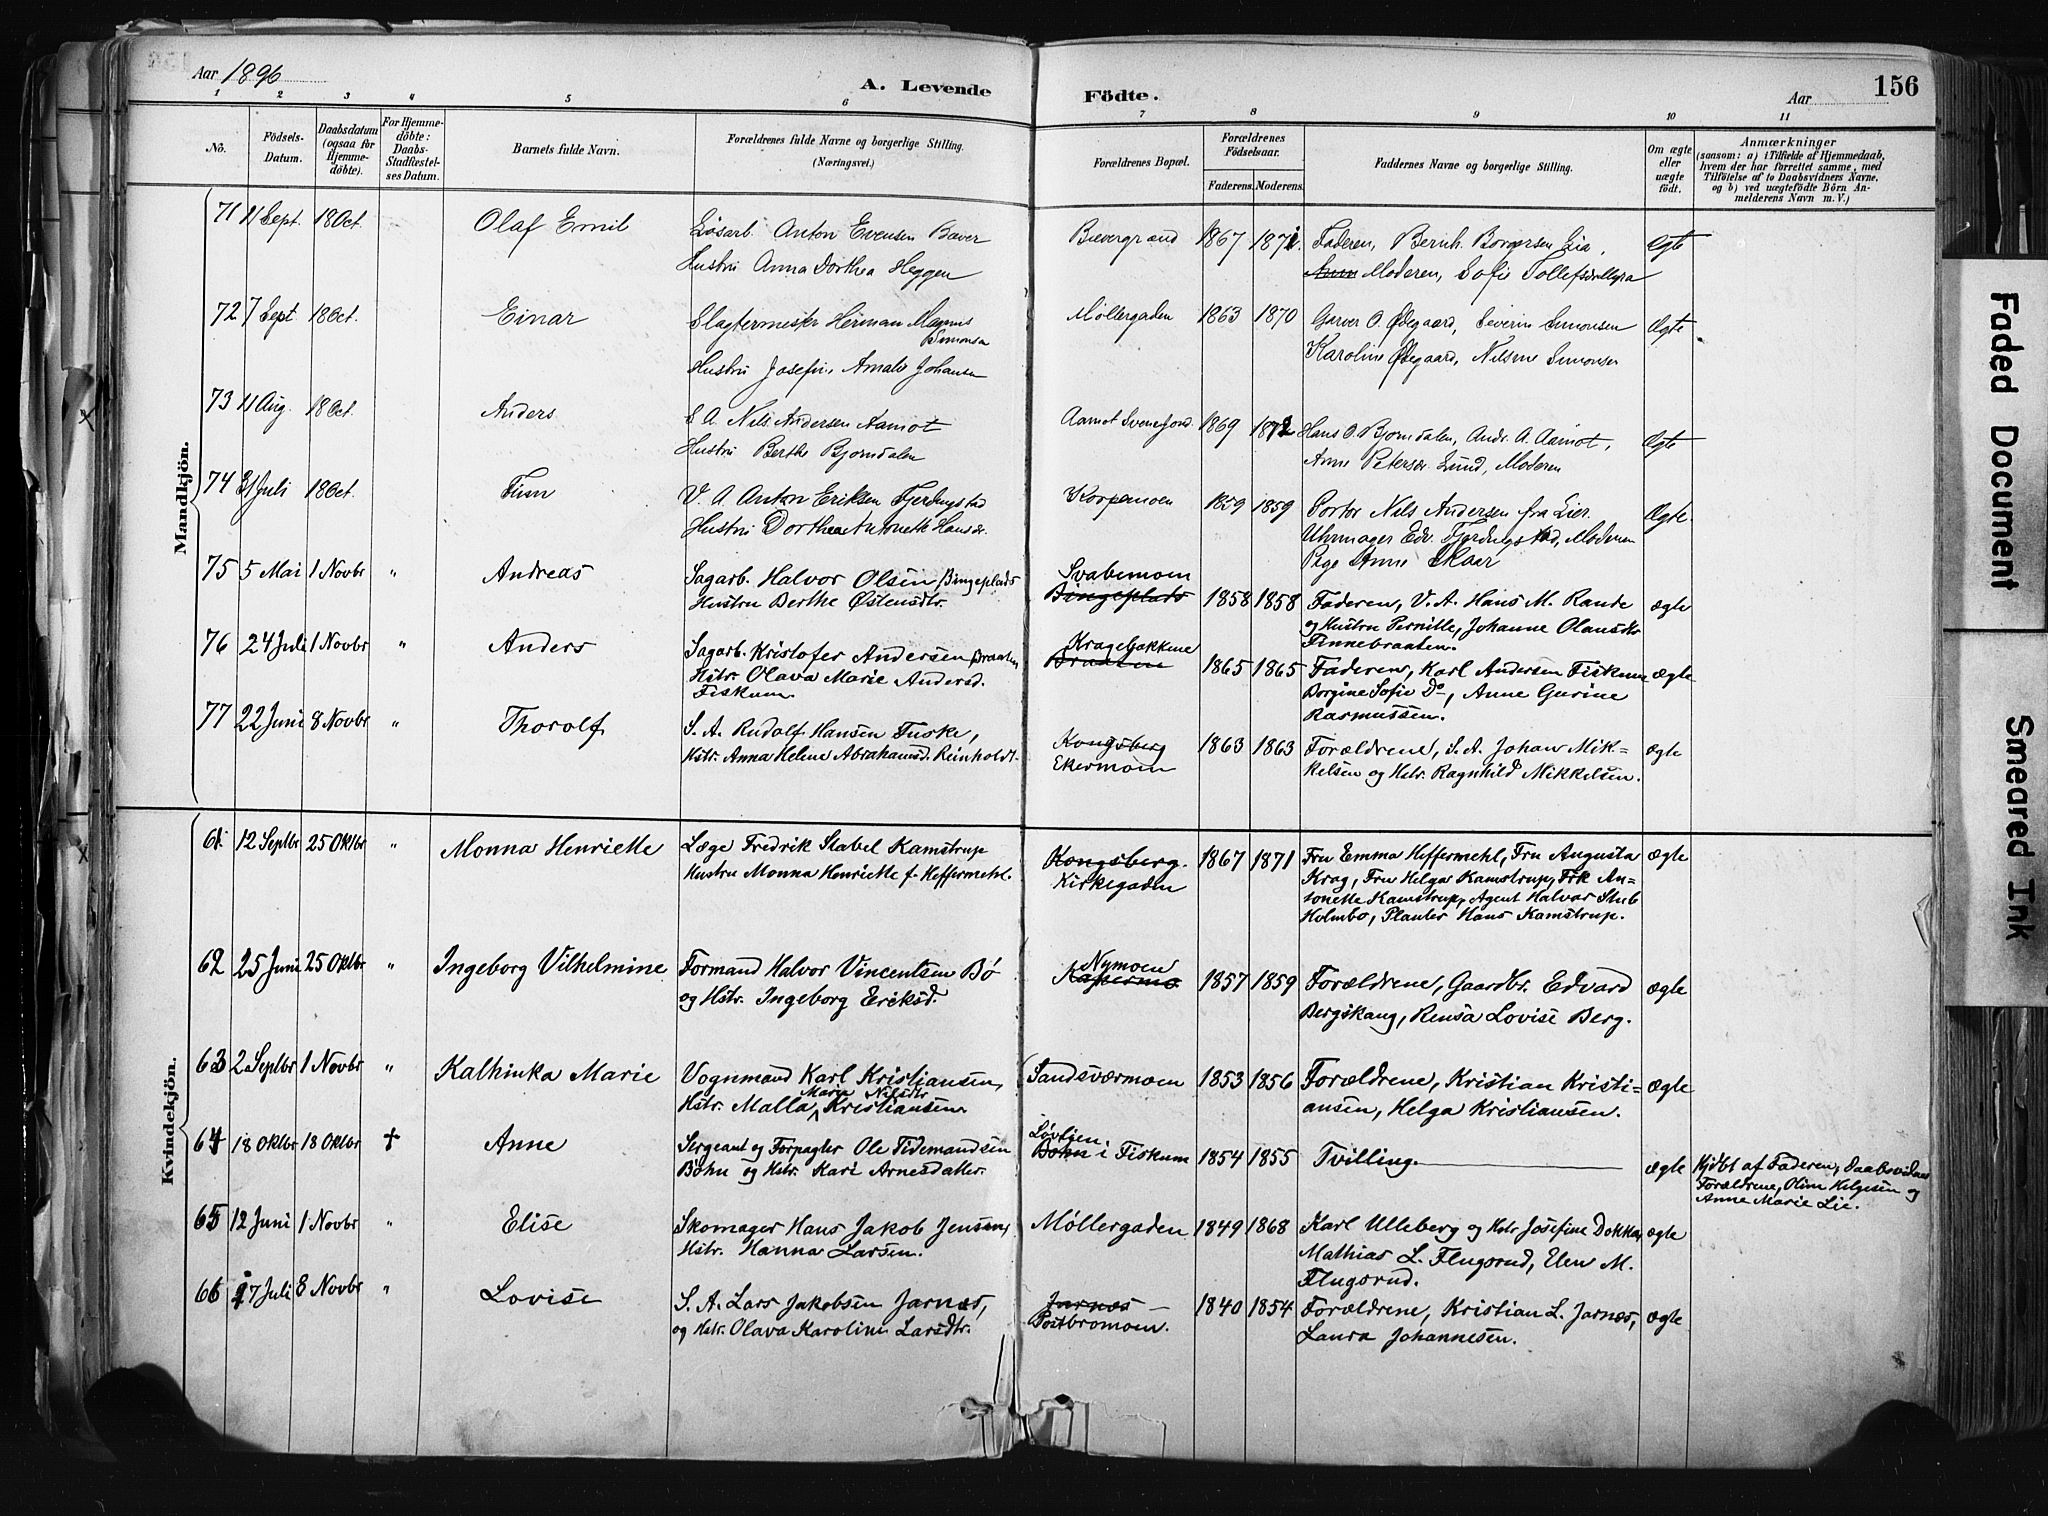 Aar 1896
A. Levende Födte.
Aar
156
1 2 3 4 5 6 7 8 9 10 11
No.
Födsels-Datum.
Daabsdatum (ogsaa for Hjemmedöbte).
For Hjemmedöbte: Daabs-Stadfæstelses Datum.
Barnets fulde Navn.
Forældrenes fulde Navne og borgerlige Stilling. (Næringsvei.)
Forældrenes Bopæl.
Forældrenes Födselsaar.
Faderens. Moderens.
Faddernes Navne og borgerlige Stilling.
Om ægte eller uægte födt.
Anmærkninger
(saasom: a) i Tilfælde af Hjemmedaab, hvem der har forrettet samme, med Tilföielse af to Daabsvidners Navne, og b) ved uægtefödte Börn Anmelderens Navn m. V.)
Mandkjön.
71 11 Sept. 18 Oct. Olaf Emil Løsarb. Anton Evensen Bæver Bævergrænd 1867 1871 Faderen, Bernh. Borgersen Lia, Ægte
Hustru Anna Dorthea Heggen Moderen, Sofie Tollefsd. Myra
72 7 Sept 18 Oct. Einar Slagtermester Herman Magnus Simonsen Møllergaden 1863 1870 Garver O. Ødegaard, Severin Simonsen Ægte
Hustru Josefine Amalie Johansen Karoline Ødegaard, Nilsine Simonsen
73 11 Aug. 18 Oct. Anders S. A. Nils Andersen Aamot Aamot Svenefjord. 1869 1872 Hans O. Bjorndalen, Andr. A. Aamot, Ægte
Hustru Berthe Bjorndalen Anne Peterson Lund, Moderen
74 31 Juli 18 Oct. Finn V. A. Anton Eriksen Fjerdingstad Korpemoen 1859 1859 Portør Nils Andersen fra Lier. Ægte
Hustru Dorthea Antonette Hansdr. Uhrmager Edv. Fjerdingstad, Moderen
Pige Anne Skaar
75 5 Mai 1 Novbr " Andreas Sagarb. Halvor Olsen Bingeplads Svabemoen
Hustru Berthe Østensdtr. Bingeplads 1858 1858 Faderen, V. A. Hans M. Rande ægte
og Hustru Pernille, Johanne Olausdtr
Finnebraaten.
76 24 Juli 1 Novbr " Anders Sagarb. Kristofer Andersen Braaten Kragebakkene
Hstr. Olava Marie Andersd. Braatene 1865 1865 Faderen, Karl Andersen Fiskum ægte
Fiskum Borgine Sofie Do, Anne Gurine
Rasmussen.
77 22 Juni 8 Novbr " Thorolf S. A. Rudolf Hansen Fuske, Kongsberg 1863 1863 Forældrene, S. A. Johan Mik= ægte
Hstr. Anna Helene Abrahamsd. Reinholdt. Ekermoen kelsen og Hstr. Ragnhild Mikkelsen.
Kvindekjön.
61. 12 Septbr 25 Oktbr " Monna Henriette Læge Fredrik Stabel Kamstrup Kongsberg. 1867 1871 Fru Emma Heffermehl, Fru Augusta ægte
Hustru Monna Henriette f. Heffermehl. Kirkegaden Krag, Fru Helga Kamstrup, Frk An=
tonette Kamstrup, Agent Halvor Stub
Holmbo, Planter Hans Kamstrup.
62 25 Juni 25 Oktbr " Ingeborg Vilhelmine Formand Halvor Vincentsen Bø Nymoen 1857 1859 Forældrene, Gaardbr. Edvard ægte
og Hstr. Ingeborg Eriksd. Bergskaug, Rensa Lovise Berg.
63 2 Septbr 1 Novbr " Kathinka Marie Vognmand Karl Kristiansen, Sandsværmoen 1853 1856 Forældrene, Kristian Kristi= ægte
Hstr. Malla Maria Nilsdtr Kristiansen. ansen, Helga Kristiansen.
64 18 Oktbr 18 Oktbr † Anne Sergeant og Forpagter Ole Tidemandsen Løvtjen
Bohn og Hstr. Kari Arnesdatter. Bohn i Fiskum 1854 1855 Tvilling. ægte Hjdbt af Faderen, Daabsvidner
Forældrene, Oline Helgesen og
Anne Marie Lie.
65 12 Juni 1 Novbr " Elise Skomager Hans Jakob Jensen, Møllergaden 1849 1868 Karl Ulleberg og Hstr Josefine Dokka, ægte
Hstr. Hanna Larsen. Mathias L. Flugsrud, Elen M.
Flugsrud.
66 17 Juli 8 Novbr " Lovise S. A. Lars Jakobsen Jarnæs, Jarnæs 1840 1854 Forældrene, Kristian L. Jarnæs, ægte
og Hstr. Olava Karoline Larsdtr. Postbromoen. Laura Johannesen.
Faded Document
Smeared Ink